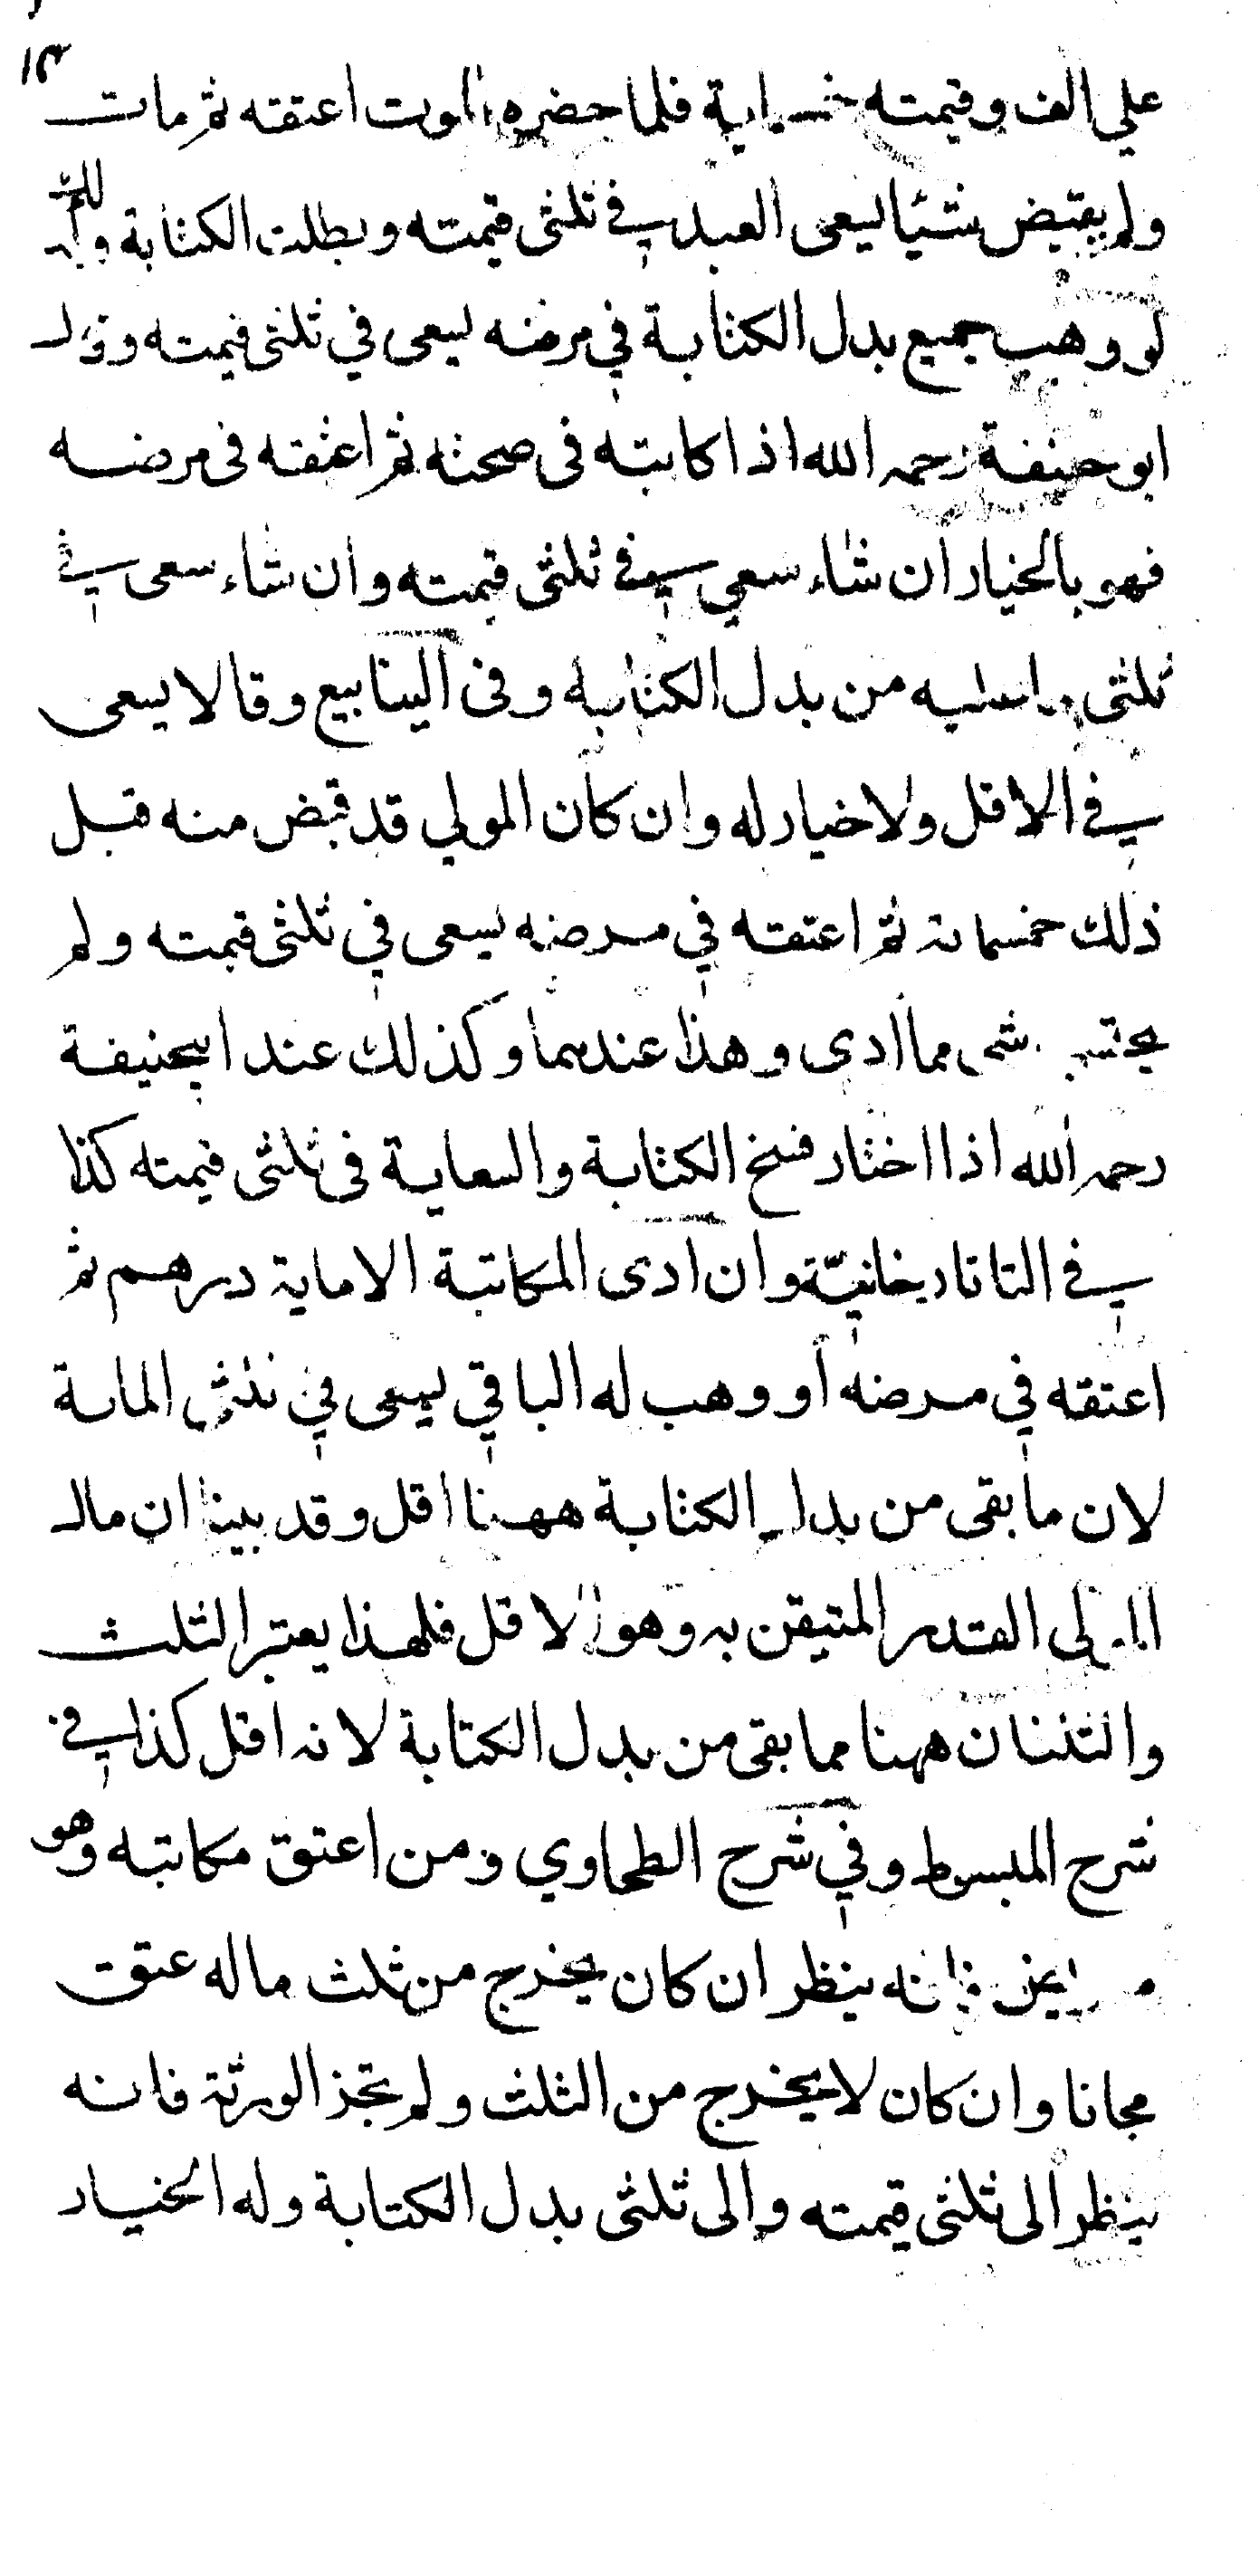 على الف وقيمته خمسماية فلما حضره الموت اعتقه ثم مات
ولم يقبض شيئا يسعى العبد في ثلثى قيمته وبطلت الكتابة
لو وهب جميع بدل الكتابة في مرضه يسعى في ثلثى قيمته وقال
ابو حنيفة رحمه الله اذا كاتبه فى صحته ثم اعتقه فى مرضه
فهو بالخيار ان شاء سعي في ثلثى قيمته وان شاء سعى في
ثلثى ما عليه من بدل الكتابة وفى الينابيع وقالا يسعى
في الاقل ولا خيار له وان كان المولي قد قبض منه قبل
ذلك خمسماىة ثم اعتقه في مرضه يسعى في ثلثى قيمته ولم
يحتسب شى مما ادى وهذا عندهما وكذلك عند ابيحنيفة
رحمه الله اذا اختار فسخ الكتابة والسعاية فى ثلثى قيمته كذا
في التاتارخانيّة وان ادى المكاتبة الا ماية درهم ثم
اعتقه في مرضه او وهب له الباقي يسعى في ثلثى الماىة
لان ما بقى من بدل الكتابة ههنا اقل وقد بينا ان مال
المولى القدر المتيقن به وهو الاقل فلهذا يعتبر الثلث
والثلثان ههنا مما بقى من بدل الكتابة لانه اقل كذا في
شرح المبسوط وفي شرح الطحاوي ومن اعتق مكاتبه وهو
مريض فانه ينظر ان كان يخرج من ثلث ماله عتق
مجانا وان كان لا يخرج من الثلث ولم تجز الورثة فانه
ينظر الى ثلثى قيمته والى ثلثى بدل الكتابة وله الخيار